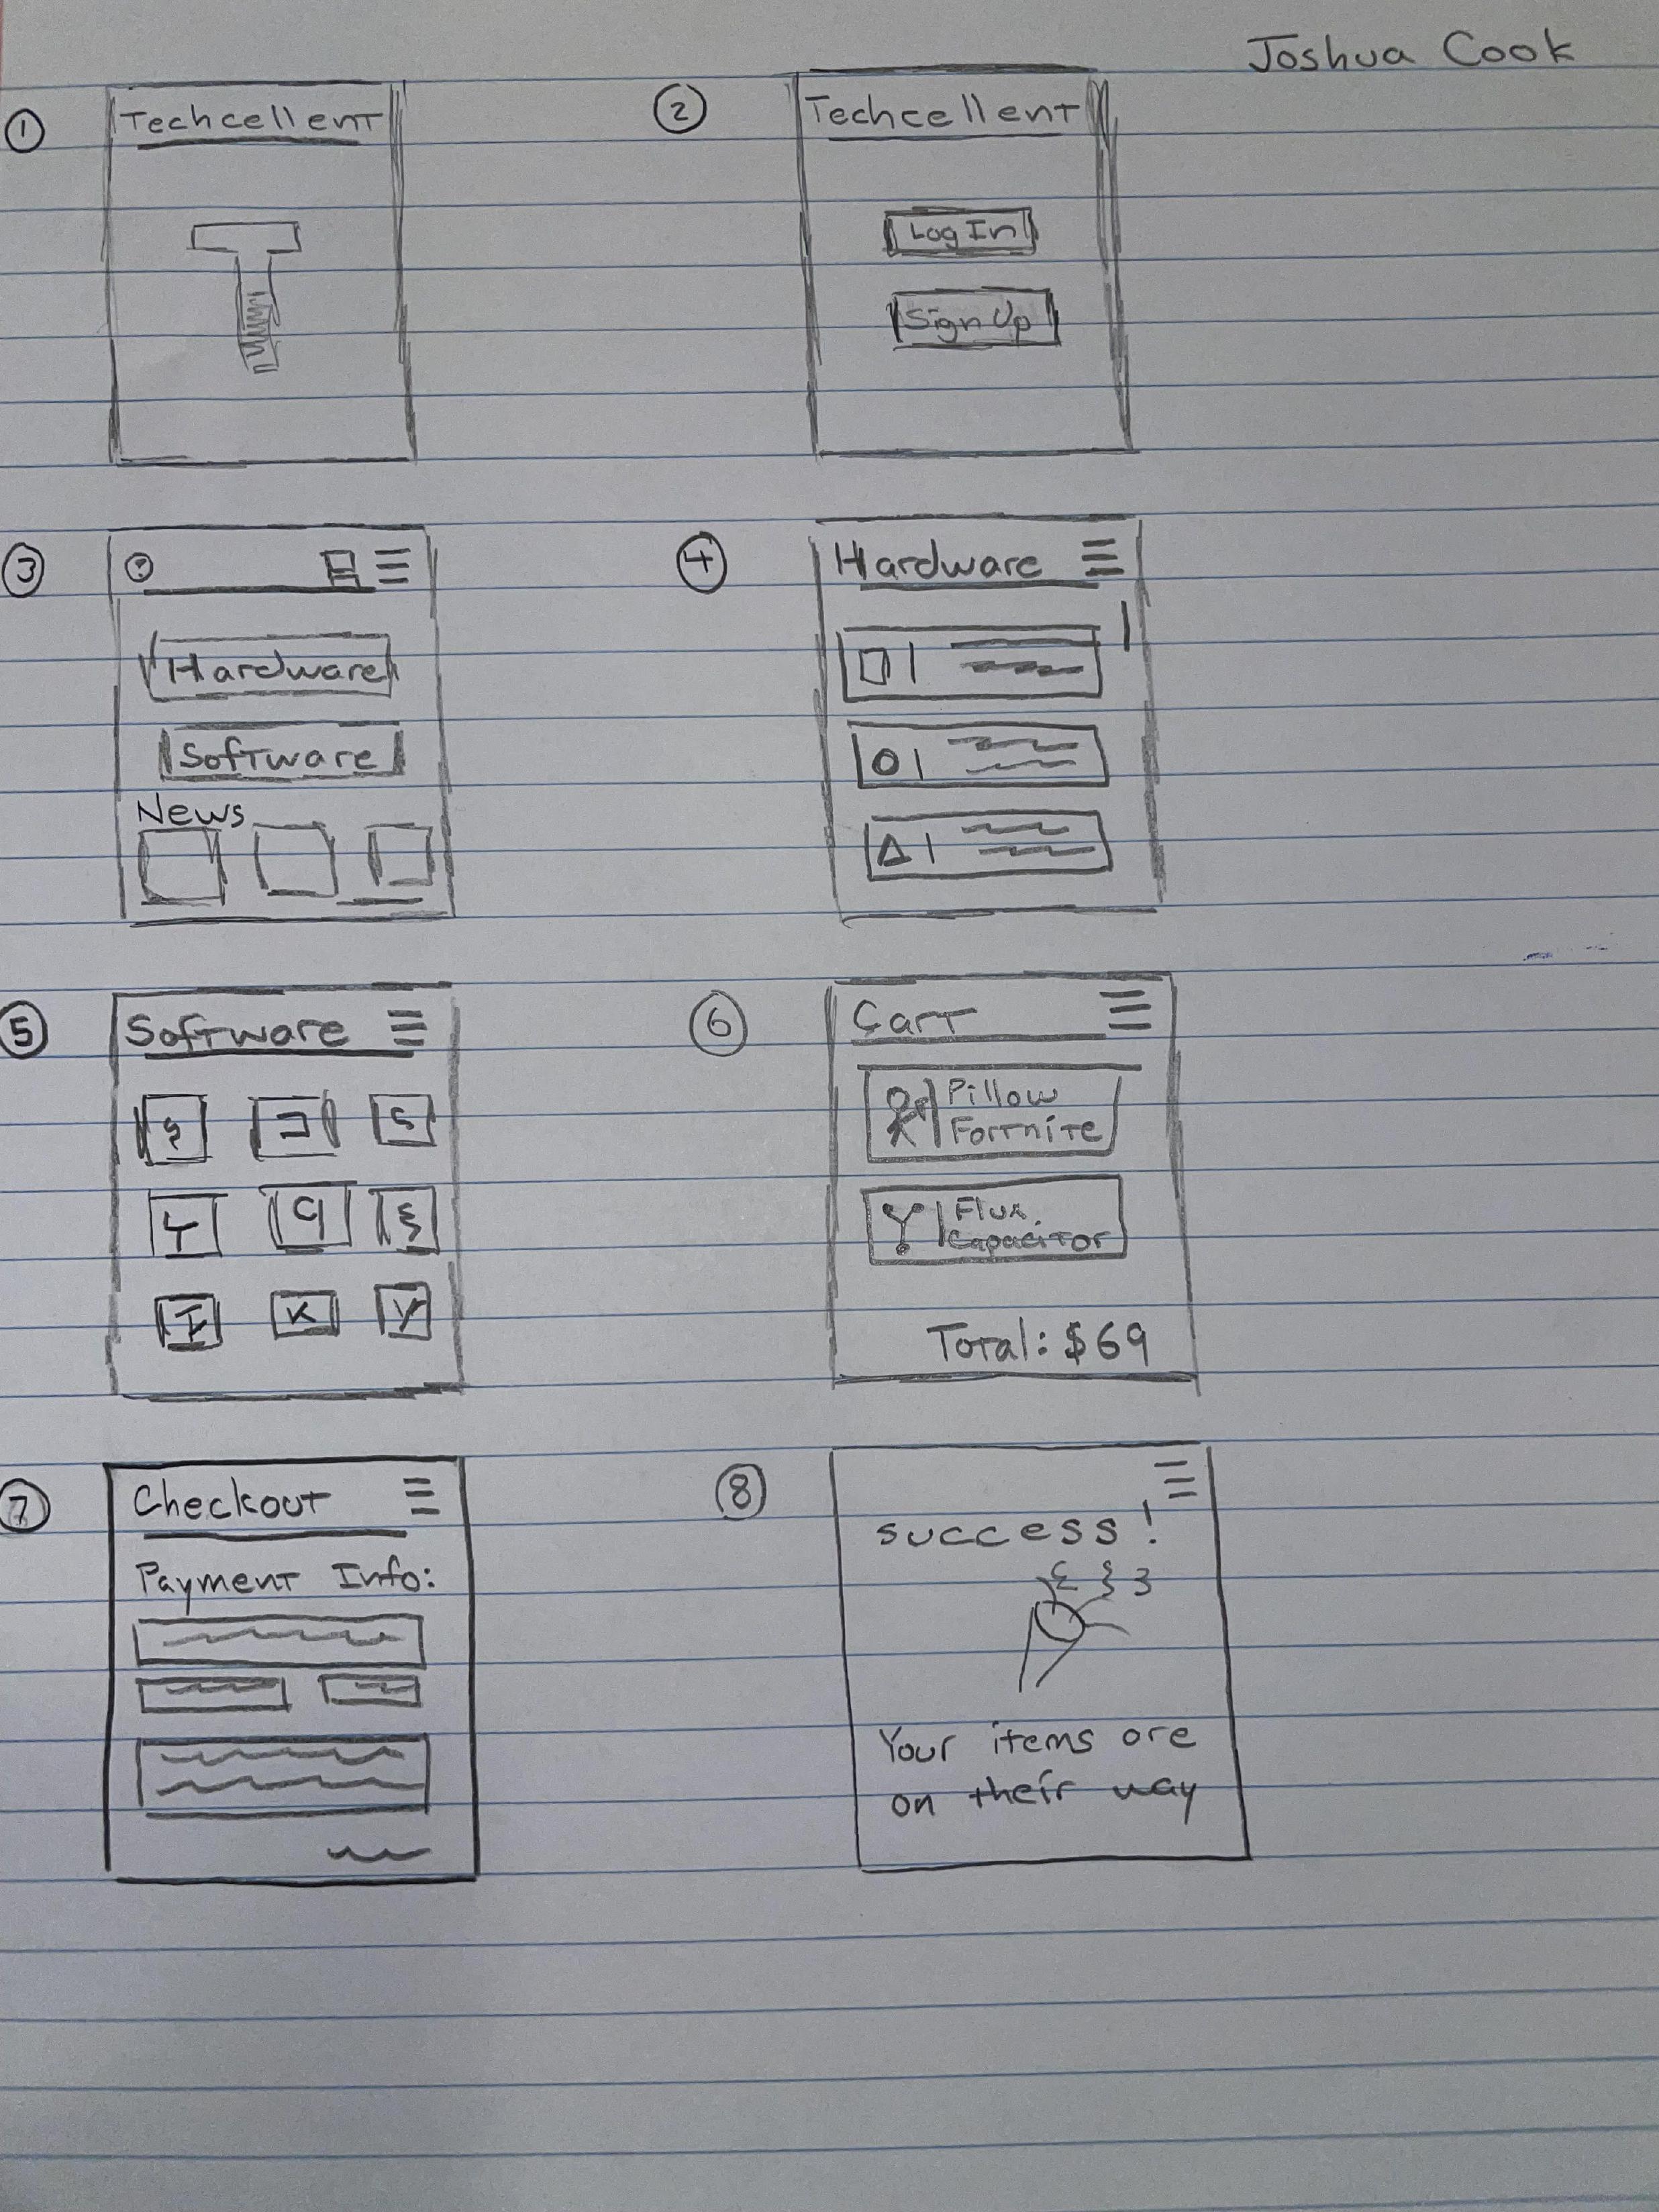 Joshua Cook
1
Techcellent
2
Techcellent
Log In
Sign Up
3
?
Hardware
Software
News
4
Hardware
5
Software
6
Cart
Pillow
Fortnite
Flux
Capacitor
Total: $69
7
Checkout
Payment Info:
8
success!
Your items are
on their way